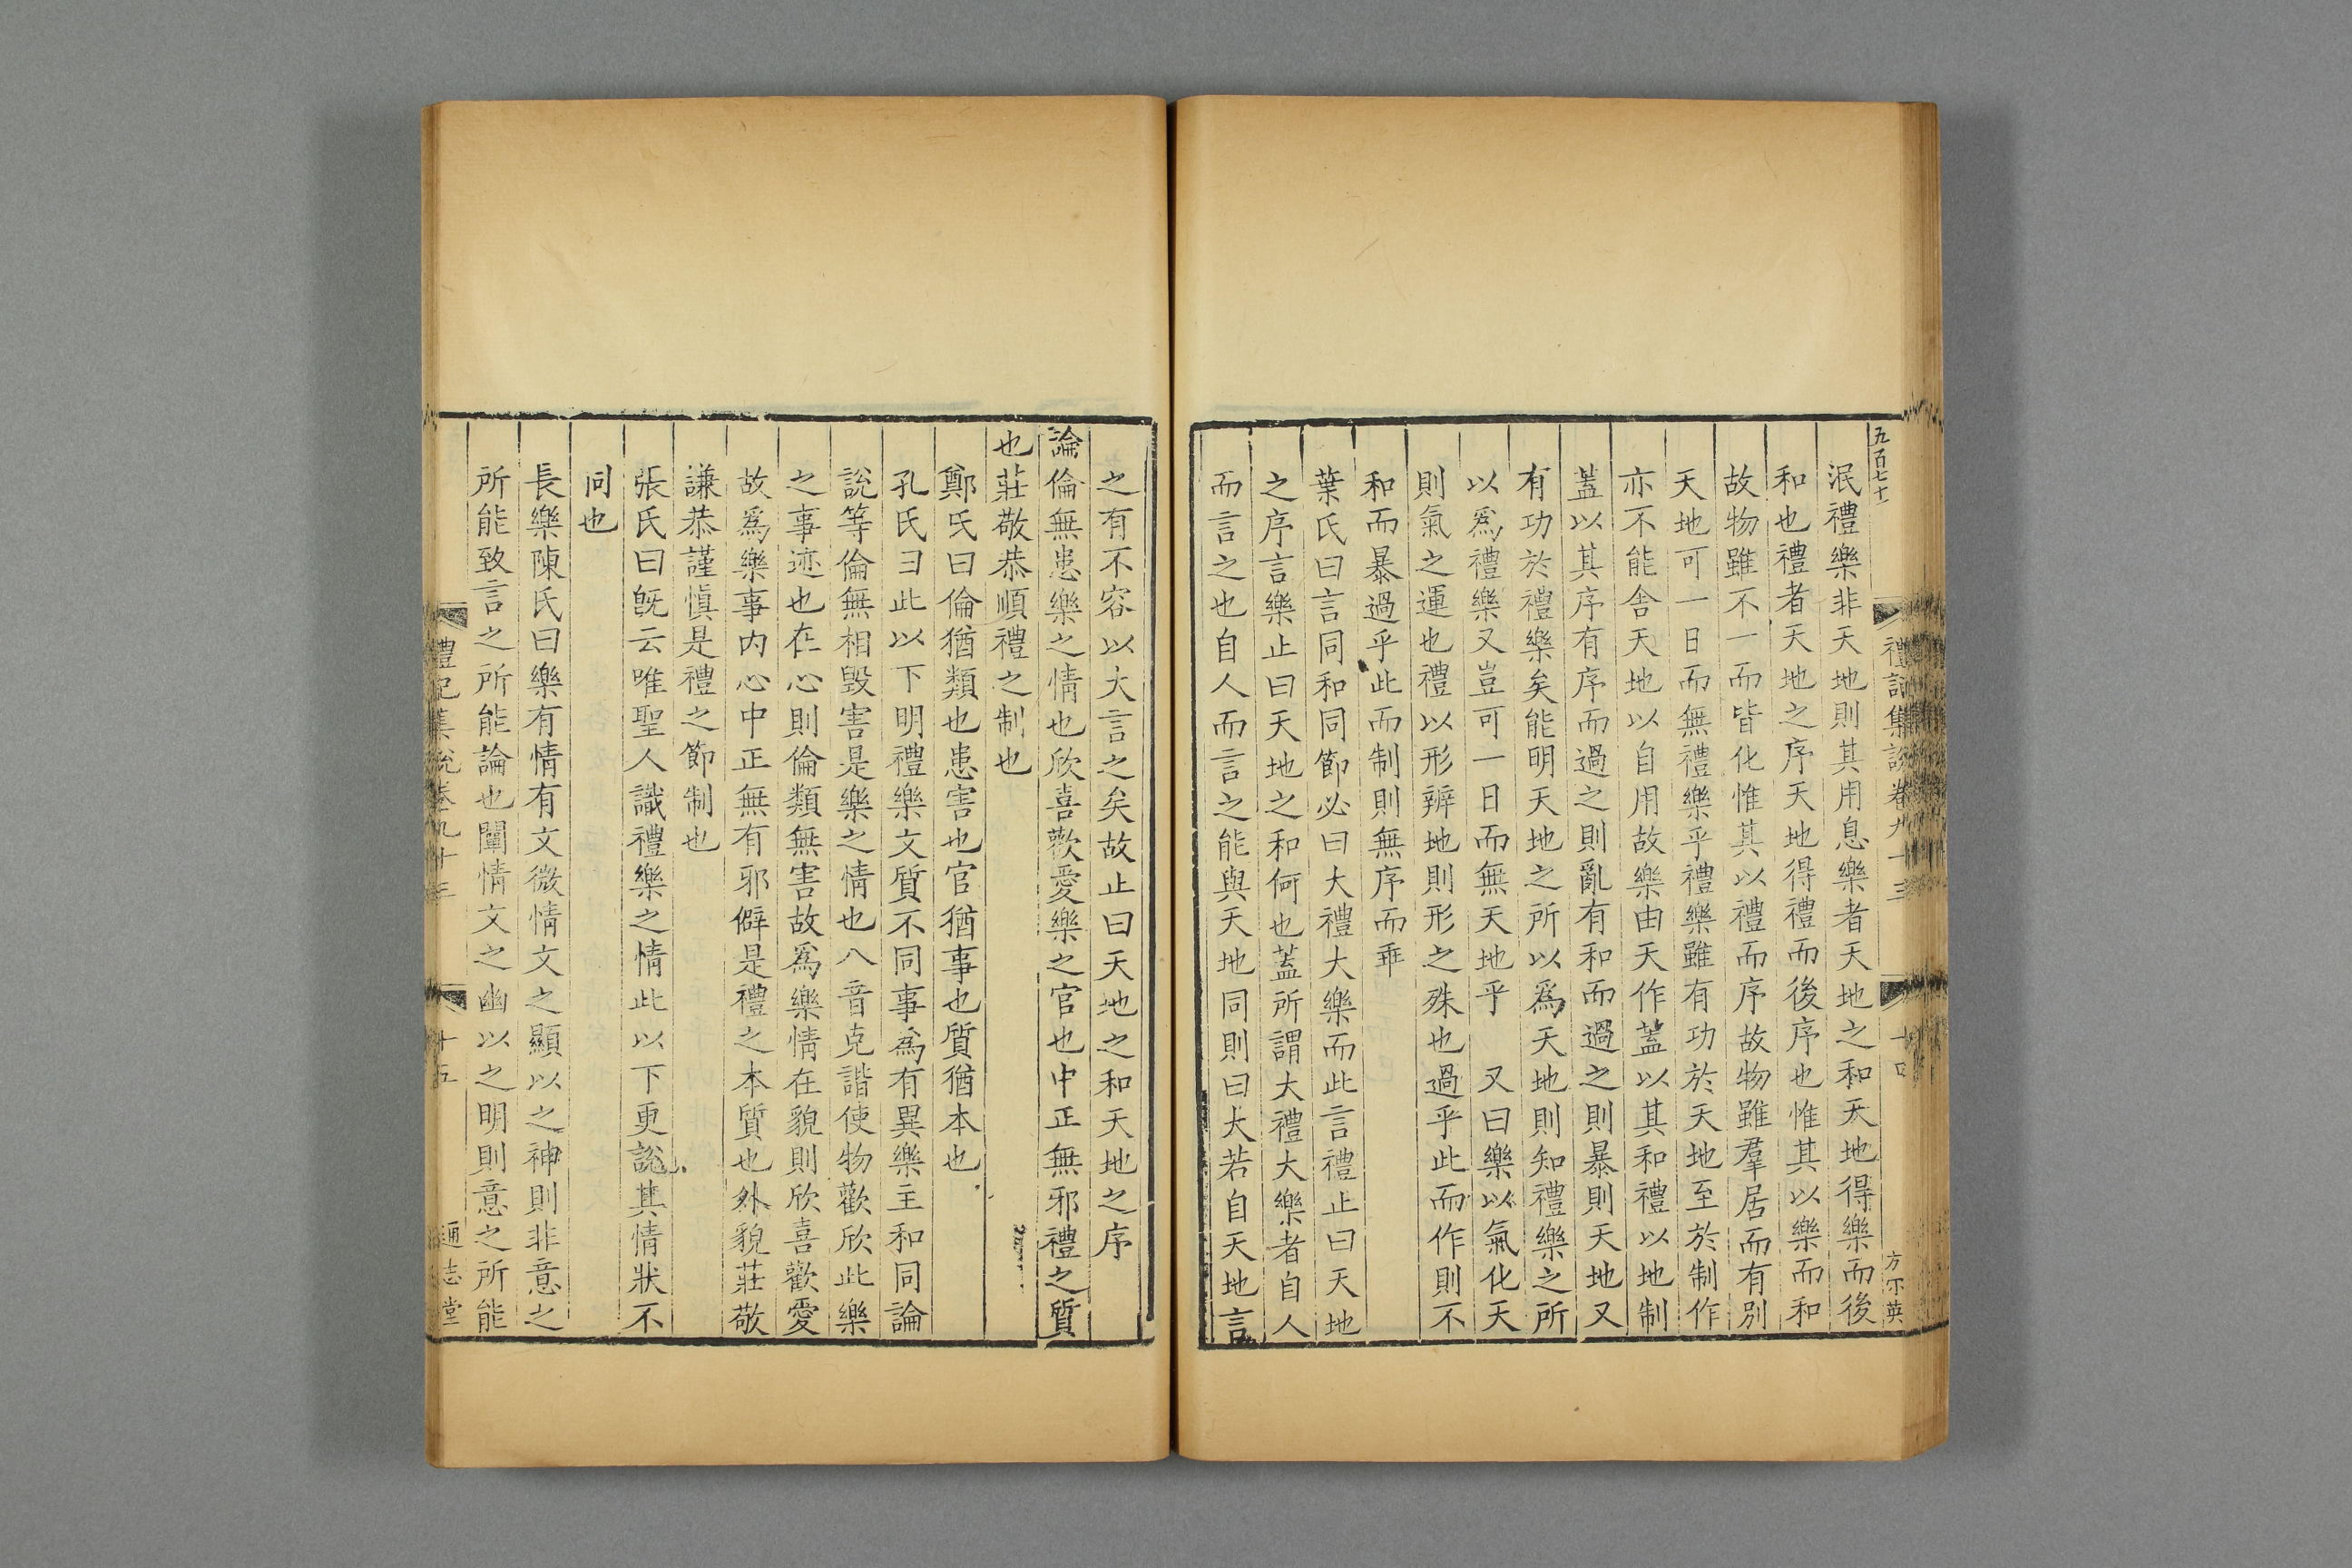 五百七十
禮記集說卷九十三
十四
方不英
泯禮樂非天地則其用息樂者天地之和天地得樂而後
和也禮者天地之序天地得禮而後序也惟其以樂而和
故物雖不一而皆化惟其以禮而序故物雖羣居而有別
天地可一日而無禮樂乎禮樂雖有功於天地至於制作
亦不能舍天地以自用故樂由天作蓋以其和禮以地制
蓋以其序有序而過之則亂有和而過之則暴則天地又
有功於禮樂矣能明天地之所以爲天地則知禮樂之所
以爲禮樂又豈可一日而無天地乎 又曰樂以氣化天
則氣之運也禮以形辨地則形之殊也過乎此而作則不
和而暴過乎此而制則無序而乖
葉氏曰言同和同節必曰大禮大樂而此言禮止曰天地
之序言樂止曰天地之和何也蓋所謂大禮大樂者自人
而言之也自人而言之能與天地同則曰大若自天地言
之有不容以大言之矣故止曰天地之和天地之序
論倫無患樂之情也欣喜歡愛樂之官也中正無邪禮之質
也莊敬恭順禮之制也
鄭氏曰倫猶類也患害也官猶事也質猶本也
孔氏曰此以下明禮樂文質不同事爲有異樂主和同論
說等倫無相毀害是樂之情也八音克諧使物歡欣此樂
之事迹也在心則倫類無害故爲樂情在貌則欣喜歡愛
故爲樂事内心中正無有邪僻是禮之本質也外貌莊敬
謙恭謹愼是禮之節制也
張氏曰旣云唯聖人識禮樂之情此以下更說其情狀不
同也
長樂陳氏曰樂有情有文微情文之顯以之神則非意之
所能致言之所能論也闡情文之幽以之明則意之所能
禮記集說卷九十三
十五
通志堂